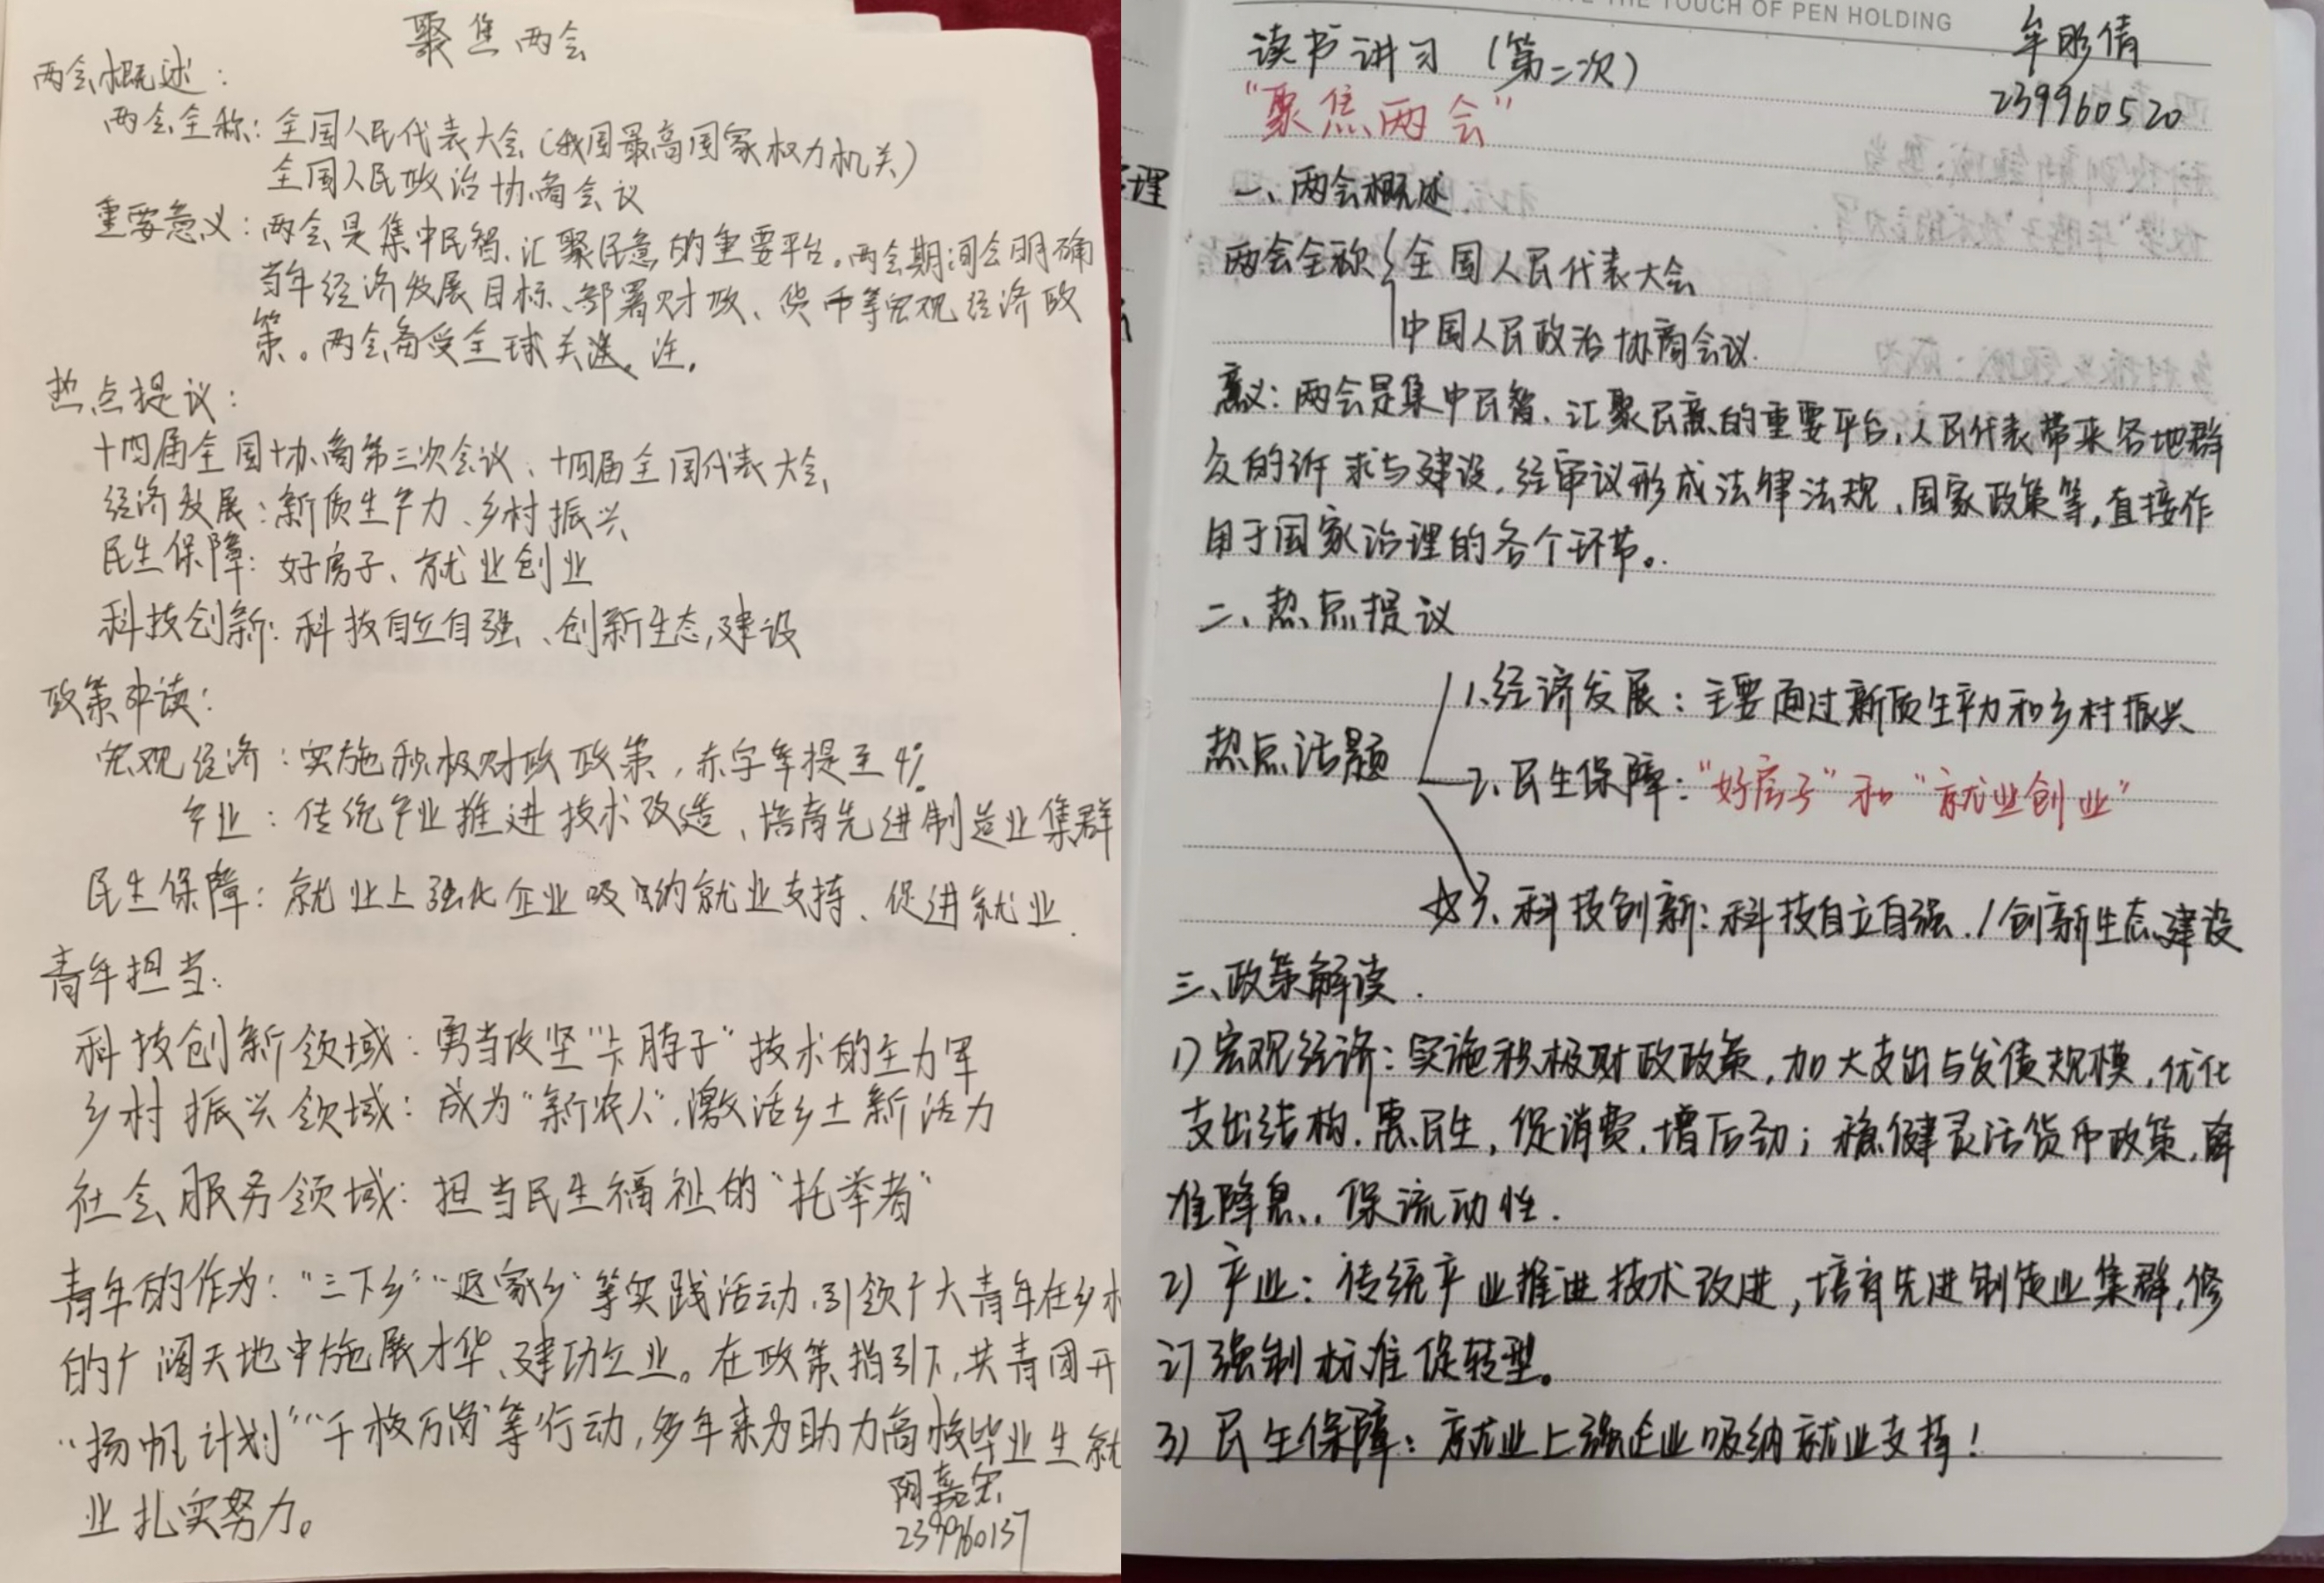 聚焦两会
两会概述：
两会全称：全国人民代表大会（我国最高国家权力机关）
全国人民政治协商会议
重要意义：两会是集中民智、汇聚民意的重要平台。两会期间会明确
当年经济发展目标、部署财政、货币等宏观经济政
策。两会备受全球关注。
热点提议：
十四届全国协商第三次会议、十四届全国代表大会
经济发展：新质生产力、乡村振兴
民生保障：好房子、就业创业
科技创新：科技自立自强、创新生态建设
政策申读：
宏观经济：实施积极财政政策，赤字率提至4%
产业：传统产业推进技术改造、培育先进制造业集群
民生保障：就业上强化企业吸纳就业支持、促进就业.
青年担当：
科技创新领域：勇当攻坚“卡脖子”技术的主力军
乡村振兴领域：成为“新农人”，激活乡土新活力
社会服务领域：担当民生福祉的“托举者”
青年的作为：“三下乡”“返家乡”等实践活动，引领广大青年在乡村
的广阔天地中施展才华、建功立业。在政策指引下，共青团开
“扬帆计划”“千校万岗”等行动，多年来为助力高校毕业生就
业扎实努力。
阴嘉
239960137
THE TOUCH OF PEN HOLDING
读书讲习（第二次）
牟彤倩
239960520
“聚焦两会”
一、两会概述
两会全称 全国人民代表大会
中国人民政治协商会议.
意义：两会是集中民智、汇聚民意的重要平台，人民代表带来各地群
众的诉求与建设，经审议形成法律法规、国家政策等，直接作
用于国家治理的各个环节。
二、热点提议
1.经济发展：主要通过新质生产力和乡村振兴
热点话题
2.民生保障：“好房子”和“就业创业”
☆3.科技创新：科技自立自强./创新生态建设
三、政策解读.
1）宏观经济：实施积极财政政策，加大支出与发债规模，优化
支出结构，惠民生，促消费，增后劲；稳健灵活货币政策，降
准降息，保流动性.
2）产业：传统产业推进技术改进，培育先进制造业集群，修
订强制标准促转型。
3）民生保障：就业上强企业吸纳就业支持！